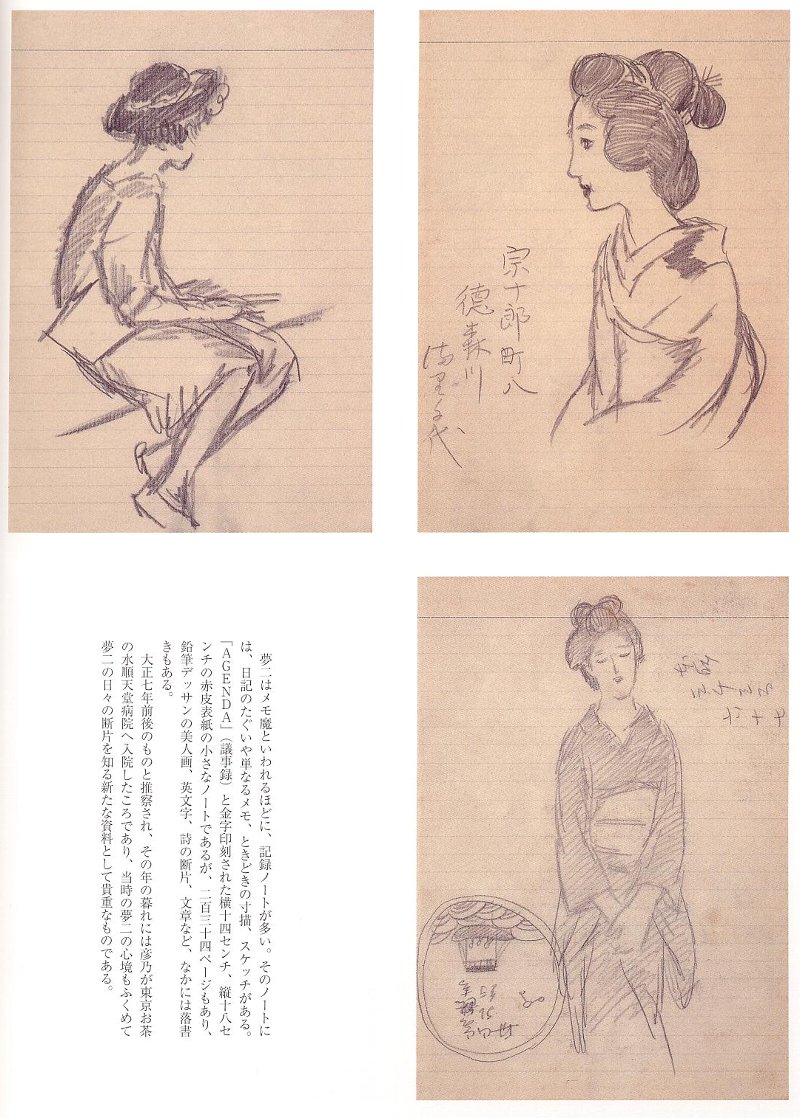 宗十郎町八
徳森川
満里千代
夢二はメモ魔といわれるほどに、記録ノートが多い。そのノートに
は、日記のたぐいや単なるメモ、ときどきの寸描、スケッチがある。
「AGENDA」(議事録)と金字印刻された横十四センチ、縦十八セ
ンチの赤皮表紙の小さなノートであるが、二百三十四ページもあり、
鉛筆デッサンの美人画、英文字、詩の断片、文章など、なかには落書
きもある。
大正七年前後のものと推察され、その年の暮れには彦乃が東京お茶
の水順天堂病院へ入院したころであり、当時の夢二の心境もふくめて
夢二の日々の断片を知る新たな資料として貴重なものである。